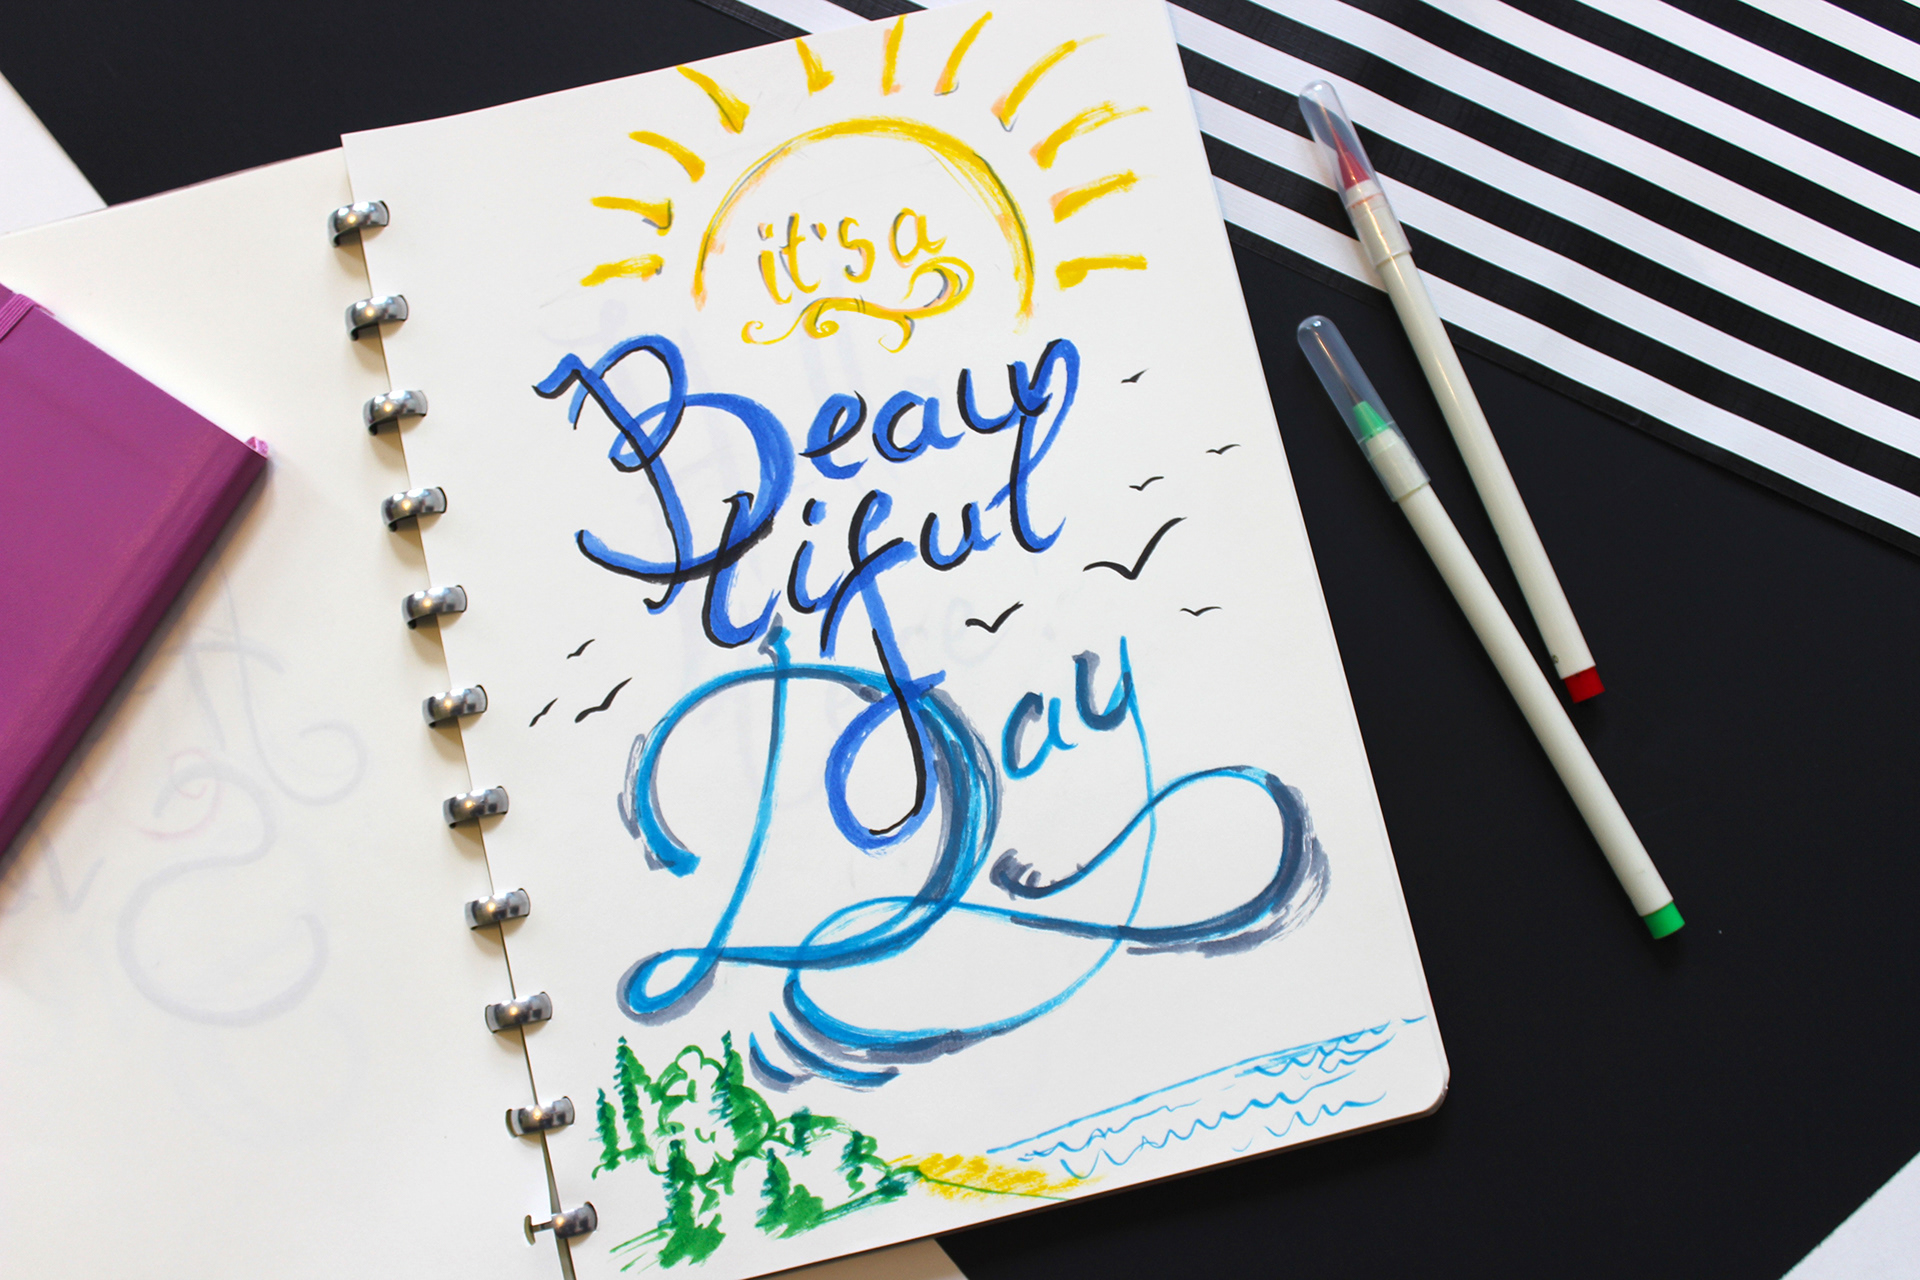 it's a
Beau
tiful
Day